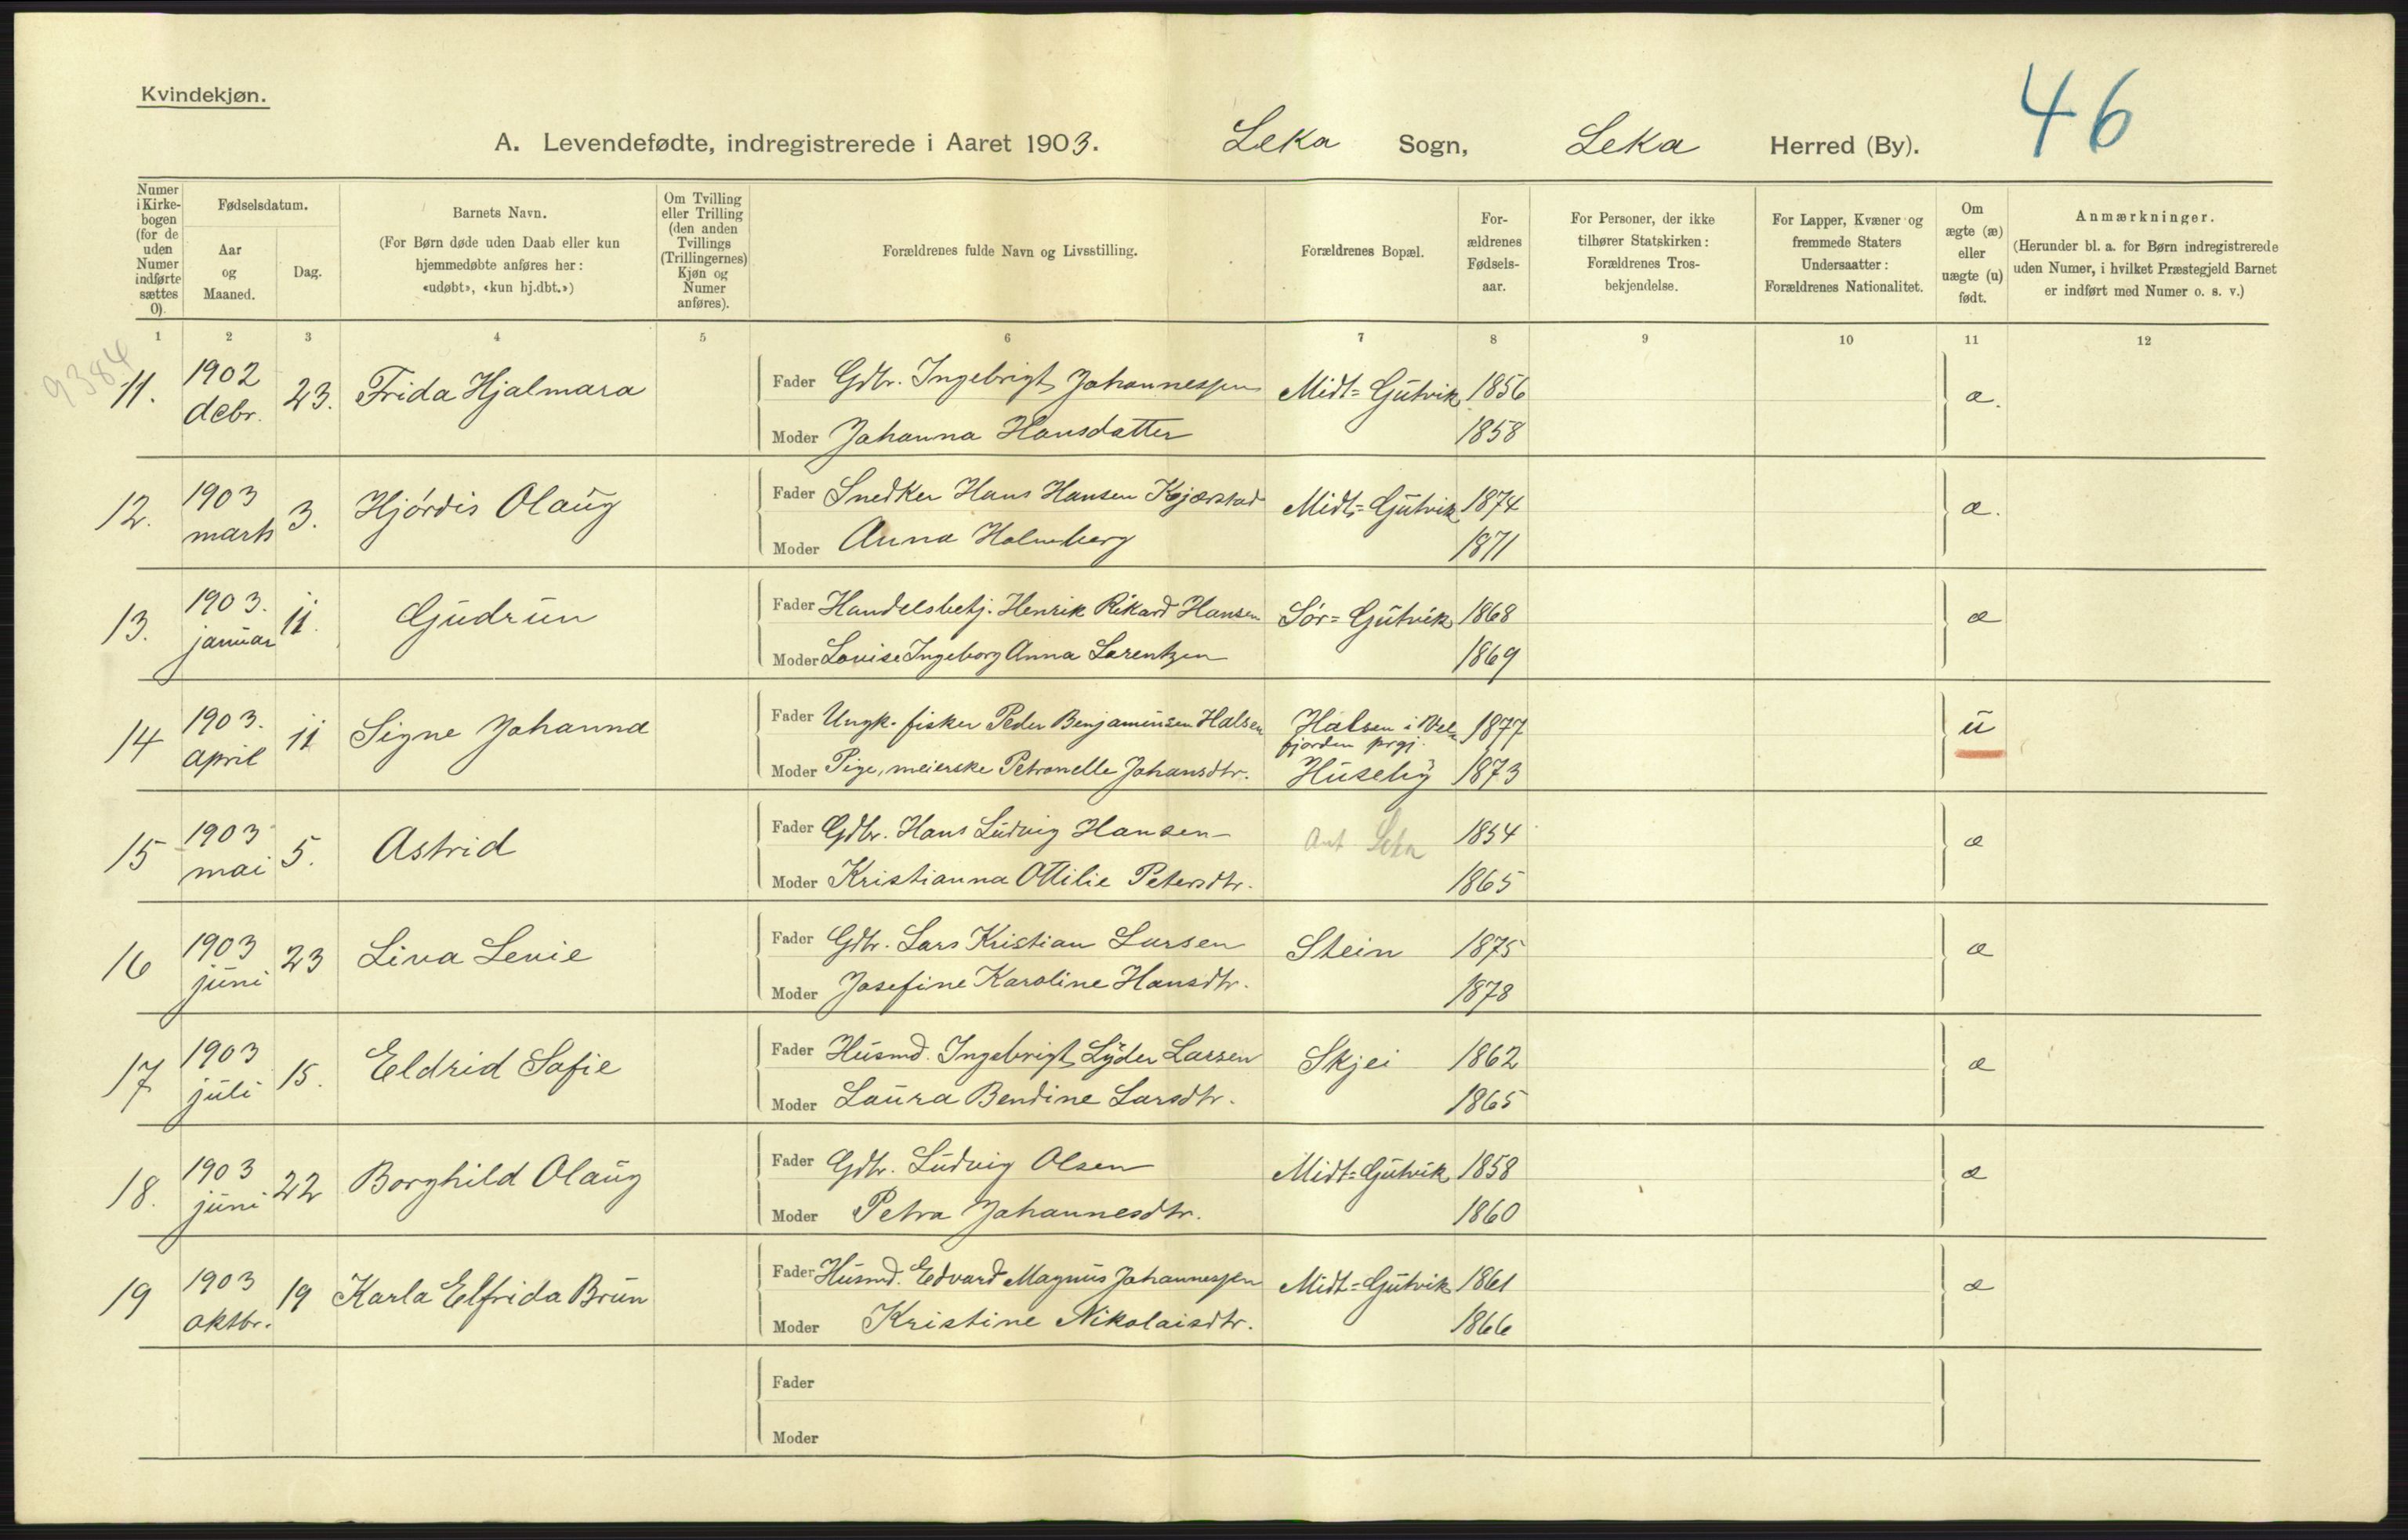 Kvindekjøn.
46
A. Levendefødte, indregistrerede i Aaret 1903. Leka Sogn, Leka Herred (By).
Numer i Kirkebogen (for de uden Numer indførte sættes 0).
Fødselsdatum.
Aar og Maaned.
Dag.
Barnets Navn.
(For Børn døde uden Daab eller kun hjemmedøbte anføres her: «udøbt», «kun hj.dbt.»)
Om Tvilling eller Trilling (den anden Tvillings (Trillingernes) Kjøn og Numer anføres).
Forældrenes fulde Navn og Livsstilling.
Forældrenes Bopæl.
Forældrenes Fødselsaar.
For Personer, der ikke tilhører Statskirken: Forældrenes Trosbekjendelse.
For Lapper, Kvæner og fremmede Staters Undersaatter: Forældrenes Nationalitet.
Om ægte (æ) eller uægte (u) født.
Anmærkninger.
(Herunder bl. a. for Børn indregistrerede uden Numer, i hvilket Præstegjeld Barnet er indført med Numer o. s. v.)
1 2 3 4 5 6 7 8 9 10 11 12
9384
11. 1902 debr. 23. Frida Hjalmara Fader Gdbr. Ingebrigt Johannessen Midt=Gutvik 1856 æ.
Moder Johanna Hansdatter 1858
12. 1903 marts 3. Hjórdis Olaug Fader Snedker Hans Hansen Kjærstad Midt=Gutvik 1874 æ.
Moder Anna Holmberg 1871
13. 1903. januar 11. Gudrun Fader Handelsbetj. Henrik Rikard Hansen Sór=Gutvik 1868 æ
Moder Lovise Ingeborg Anna Lorentzen 1869
14 1903. april 11 Signe Johanna Fader Ungk. fisker Peder Benjaminsen Halsen Halsen i Vel=fjorden prgj. 1877 u
Moder Pige, meierske Petronelle Johansdtr. Huseby 1873
15 1903 mai 5. Astrid Fader Gdbr. Hans Ludvig Hansen Ant Leka 1854 æ
Moder Kristianna Ottilie Petersdtr. 1865
16 1903 juni 23 Lina Lenie Fader Gdbr. Lars Kristian Larsen Stein 1875 æ
Moder Josefine Karoline Hansdtr. 1878
17 1903 juli 15. Eldrid Sofie Fader Husmd. Ingebrigt Lyder Larsen Skjei 1862 æ
Moder Laura Bendine Larsdtr. 1865
18. 1903 juni 22 Borghild Olaug Fader Gdbr. Ludvig Olsen Midt=Gutvik 1858 æ
Moder Petra Johannesdtr. 1860
19 1903 oktbr. 19 Karla Elfrida Brun Fader Husmd. Edvard Magnus Johannessen Midt=Gutvik 1861 æ
Moder Kristine Nikolaisdtr. 1866
Fader
Moder